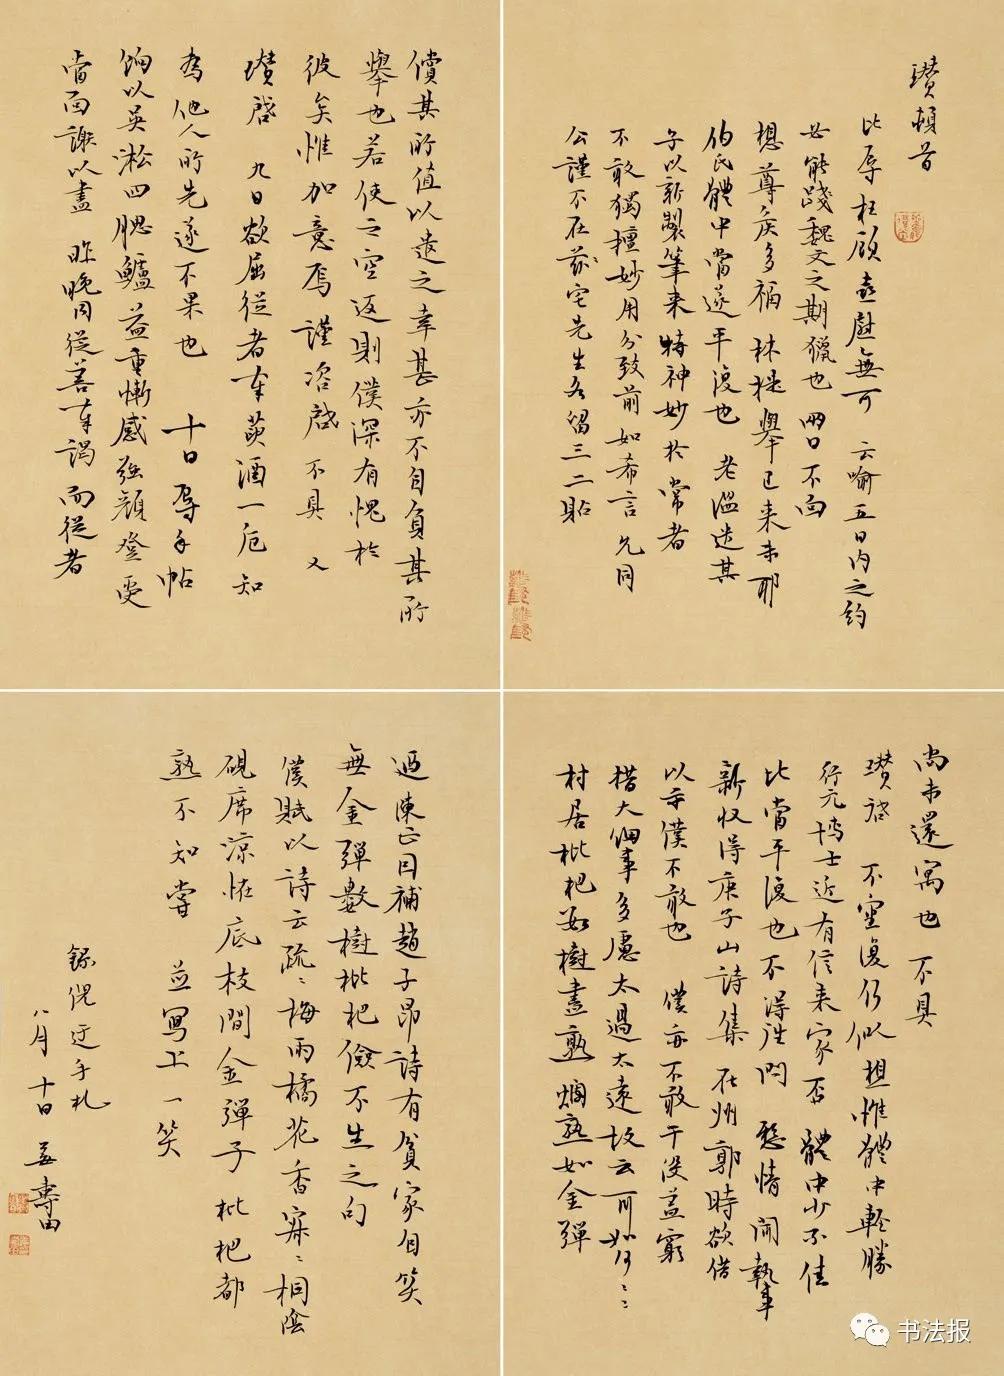 瓚頓首
比辱枉顧喜慰無可云喻五日内之約
必能踐魏文之期獵也兩日不面
想尊矦多福林提舉已来未耶
伯氏體中當遂平復也老温送其
子以新製筆来特神妙於常者
不敢獨擅妙用分致前如希言允同
公謹不在茲宅先生各留三二貼
償其所值以遣之幸甚亦不自負其所
舉也若使之空返則僕深有愧於
彼矣惟加意焉謹咨啓不具又
瓚啓九日欲屈從者奉萸酒一巵知
為他人所先遂不果也十日辱手帖
餉以吴淞四腮鱸益重慚感強顔登受
當面謝以盡昨晚同從善奉謁而從者
尚未還寓也不具
瓚啓不寍復仍似想惟體中輕勝
行元博士近有信来家否體中少不佳
比當平復也不得往問愁情聞執事
新收得庚子山詩集在州郭時欲借
以示僕不敢也僕亦不敢干没益窮
措大佃事多慮太過太遠故云可如何〻〻
村居枇杷如樹盡熟爛熟如金彈
過陳正因補趙子昂詩有貧家自笑
無金彈數樹枇杷儉不生之句
僕賦以詩云疏〻梅雨橘花香寐〻桐陰
硯席凉怪底枝間金彈子枇杷都
熟不知嘗並寫上一笑
録倪迂手札
八月十日
书法报